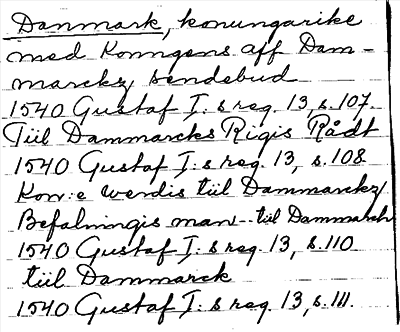 Danmark, konungarike
med Konngens aff Dam-
marckz sendebud
1540 Gustaf I:s reg. 13, s. 107.
Tiil Dammarcks Rigis Rådt
1540 Gustaf I:s reg. 13, s. 108
Kon:e werdis tiil Dammarckz
Befalningis man - tiil Dammarck
1540 Gustaf I:s reg. 13, s. 110
tiil Dammarck
1540 Gustaf I:s reg. 13, s. 111.